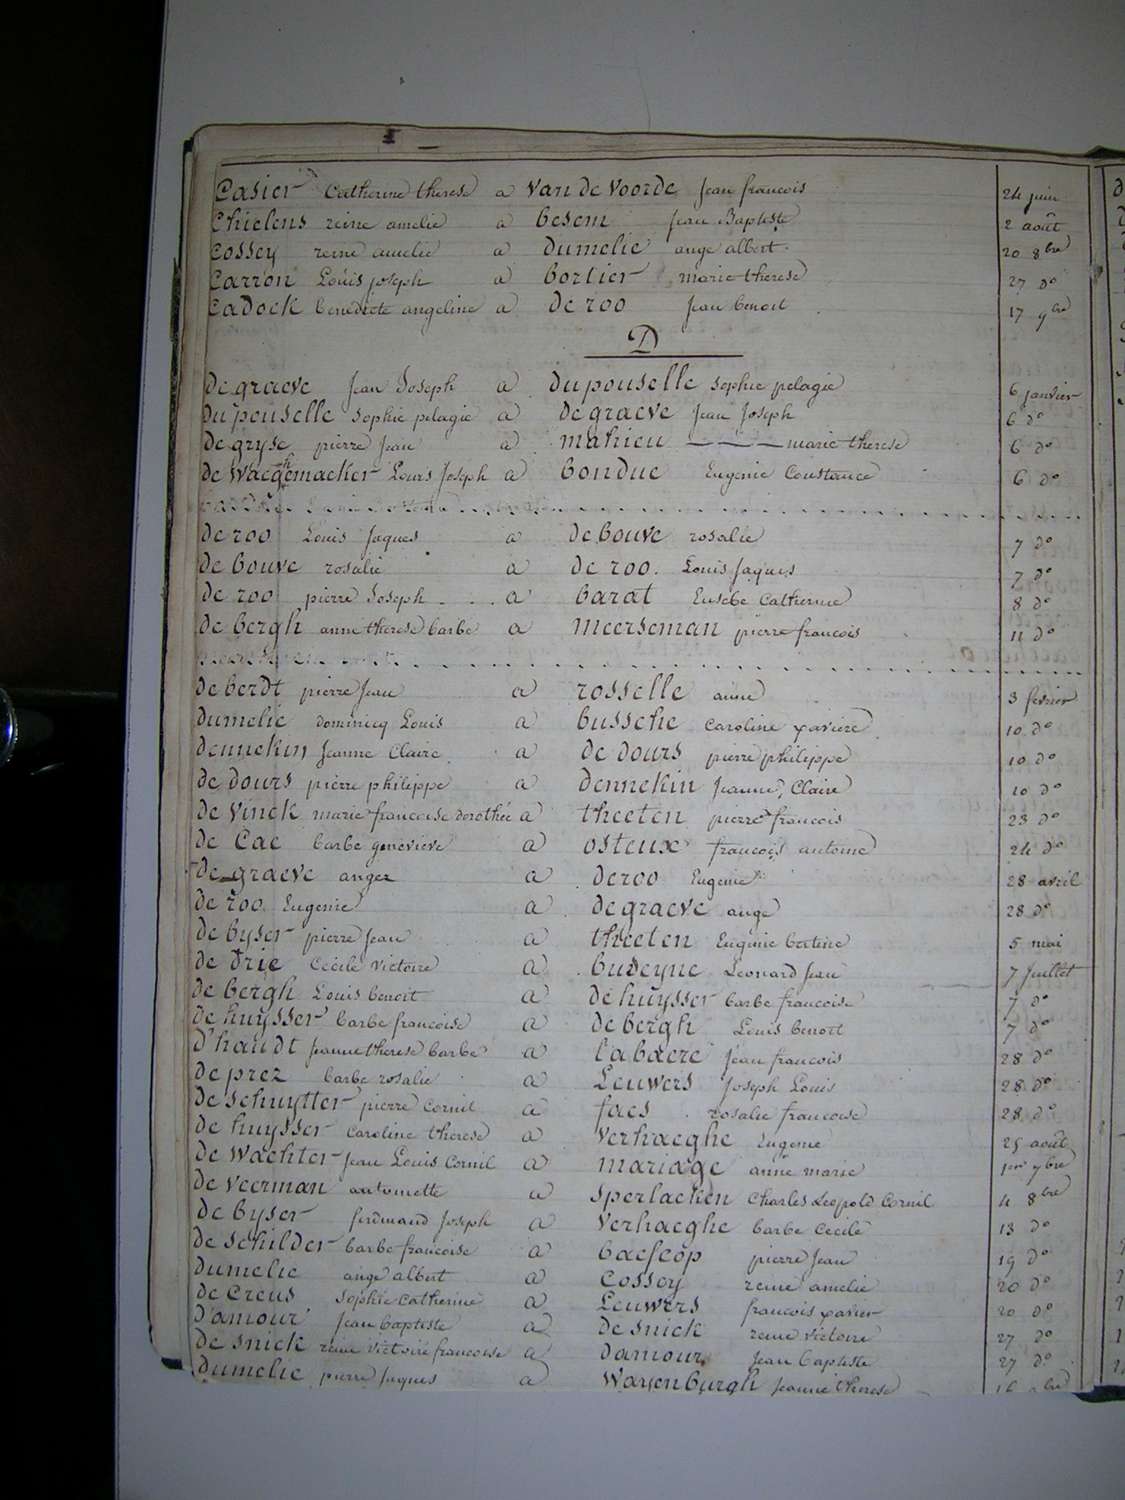 Casier Catherine therese a Van de Voorde Jean francois 24 juin
Chielens reine amelie a besem Jean Baptiste 2 août
Cossey reine amelie a Dumelie ange albert 20 8bre
Carron Louis joseph a bortier marie therese 27 do
Cadock benedicte angeline a De roo Jean benoit 17 9bre
D
De graeve Jean Joseph a Dupouselle Sophie pelagie 6 janvier
Dupouselle Sophie pelagie a De graeve Jean Joseph 6 do
De gryse pierre Jean a mahieu marie therese 6 do
De Waeghemacker Louis Joseph a bonduc Eugenie Constance 6 do
De roo Louis Jaques a De bouve rosalie 7 do
De bouve rosalie a De roo Louis Jaques 7 do
De roo pierre Joseph a barat Eusebe Catherine 8 do
De bergh anne therese barbe a meerseman pierre francois 11 do
De berdt pierre Jean a rosselle anne 3 fevrier
Dumelie dominicq Louis a bussche Caroline xaviere 10 do
Dennekin Jeanne Claire a De Dours pierre philippe 10 do
De Dours pierre philippe a Dennekin Jeanne Claire 10 do
De Vinck marie francoise dorothée a theeten pierre francois 23 do
De Cae barbe genevieve a osteux francois antoine 24 do
De graeve ange a De roo Eugenie 28 avril
De roo Eugenie a De graeve ange 28 do
De byser pierre Jean a theeten Eugenie bertine 5 mai
De Drie Cecile Victoire a budeyne Leonard Jean 7 Juillet
De bergh Louis benoit a De huysser barbe francoise 7 do
De huysser barbe francoise a De bergh Louis benoit 7 do
D'haudt Jeanne therese barbe a labaere Jean francois 28 do
De prez barbe rosalie a Leuwers Joseph Louis 28 do
De schuytter pierre Cornil a faes rosalie francoise 28 do
De huysser Caroline therese a Verhaeghe Eugene 25 août
De Wachter Jean Louis Cornil a mariage anne marie 1er 7bre
De Veerman antoinette a Sperlacken Charles Leopold Cornil 4 8bre
De byser ferdinand Joseph a Verhaeghe barbe Cecile 13 do
De schilder barbe francoise a baescop pierre Jean 19 do
Dumelie ange albert a Cossey reine amelie 20 do
De Creus Sophie Catherine a Leuwers francois xavier 20 do
D'amour Jean baptiste a De snick reine Victoire 27 do
De snick reine Victoire francoise a Damour Jean baptiste 27 do
Dumelie pierre Jaques a Wayenburgh Jeanne therese